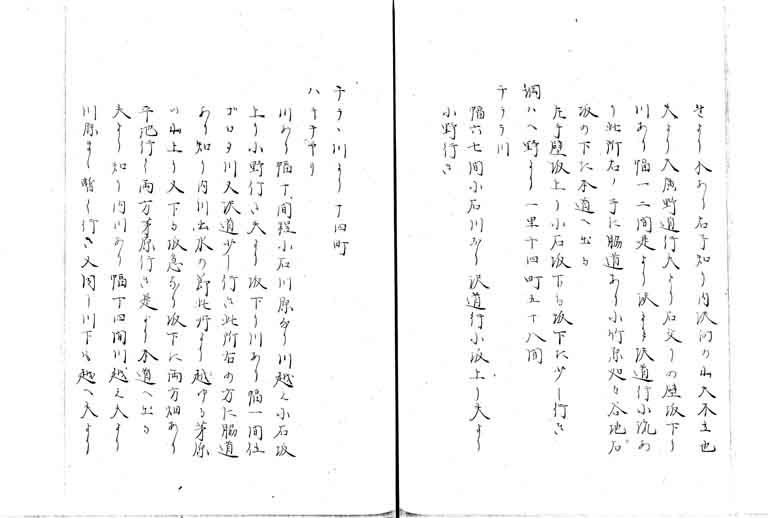 せまく木あり右手知り内沢向の山大木立也
夫より入原野道行夫より石交りの壁坂下り
川あり幅一二間是より沢道行小流あ
り此所右ノ手に脇道あり小竹原処々谷地有
坂の下に本道へ出る
左手壁坂上り小石坂下る坂下に少し行き
綱ハヘ野より一里十四町五十八間
テララ川
幅六七間小石川あり沢道行小坂上り夫より
小野行き
テラヽ川より十四町
ハキチヤリ
川あり幅十間程小石川原あり川越え小石坂
上り小野行き夫より坂下り川あり幅一間位
ホロヲ川又沢道少し行き此所右の方に脇道
あり知り内川出水の節此所より越ゆる茅原
の山上り又下る坂急なり坂下に両方畑あり
平地行く両方茅原行き是より本道へ出る
夫より知り内川あり幅十四間川越え夫より
川原まく暫く行き又同し川下も越へ夫より